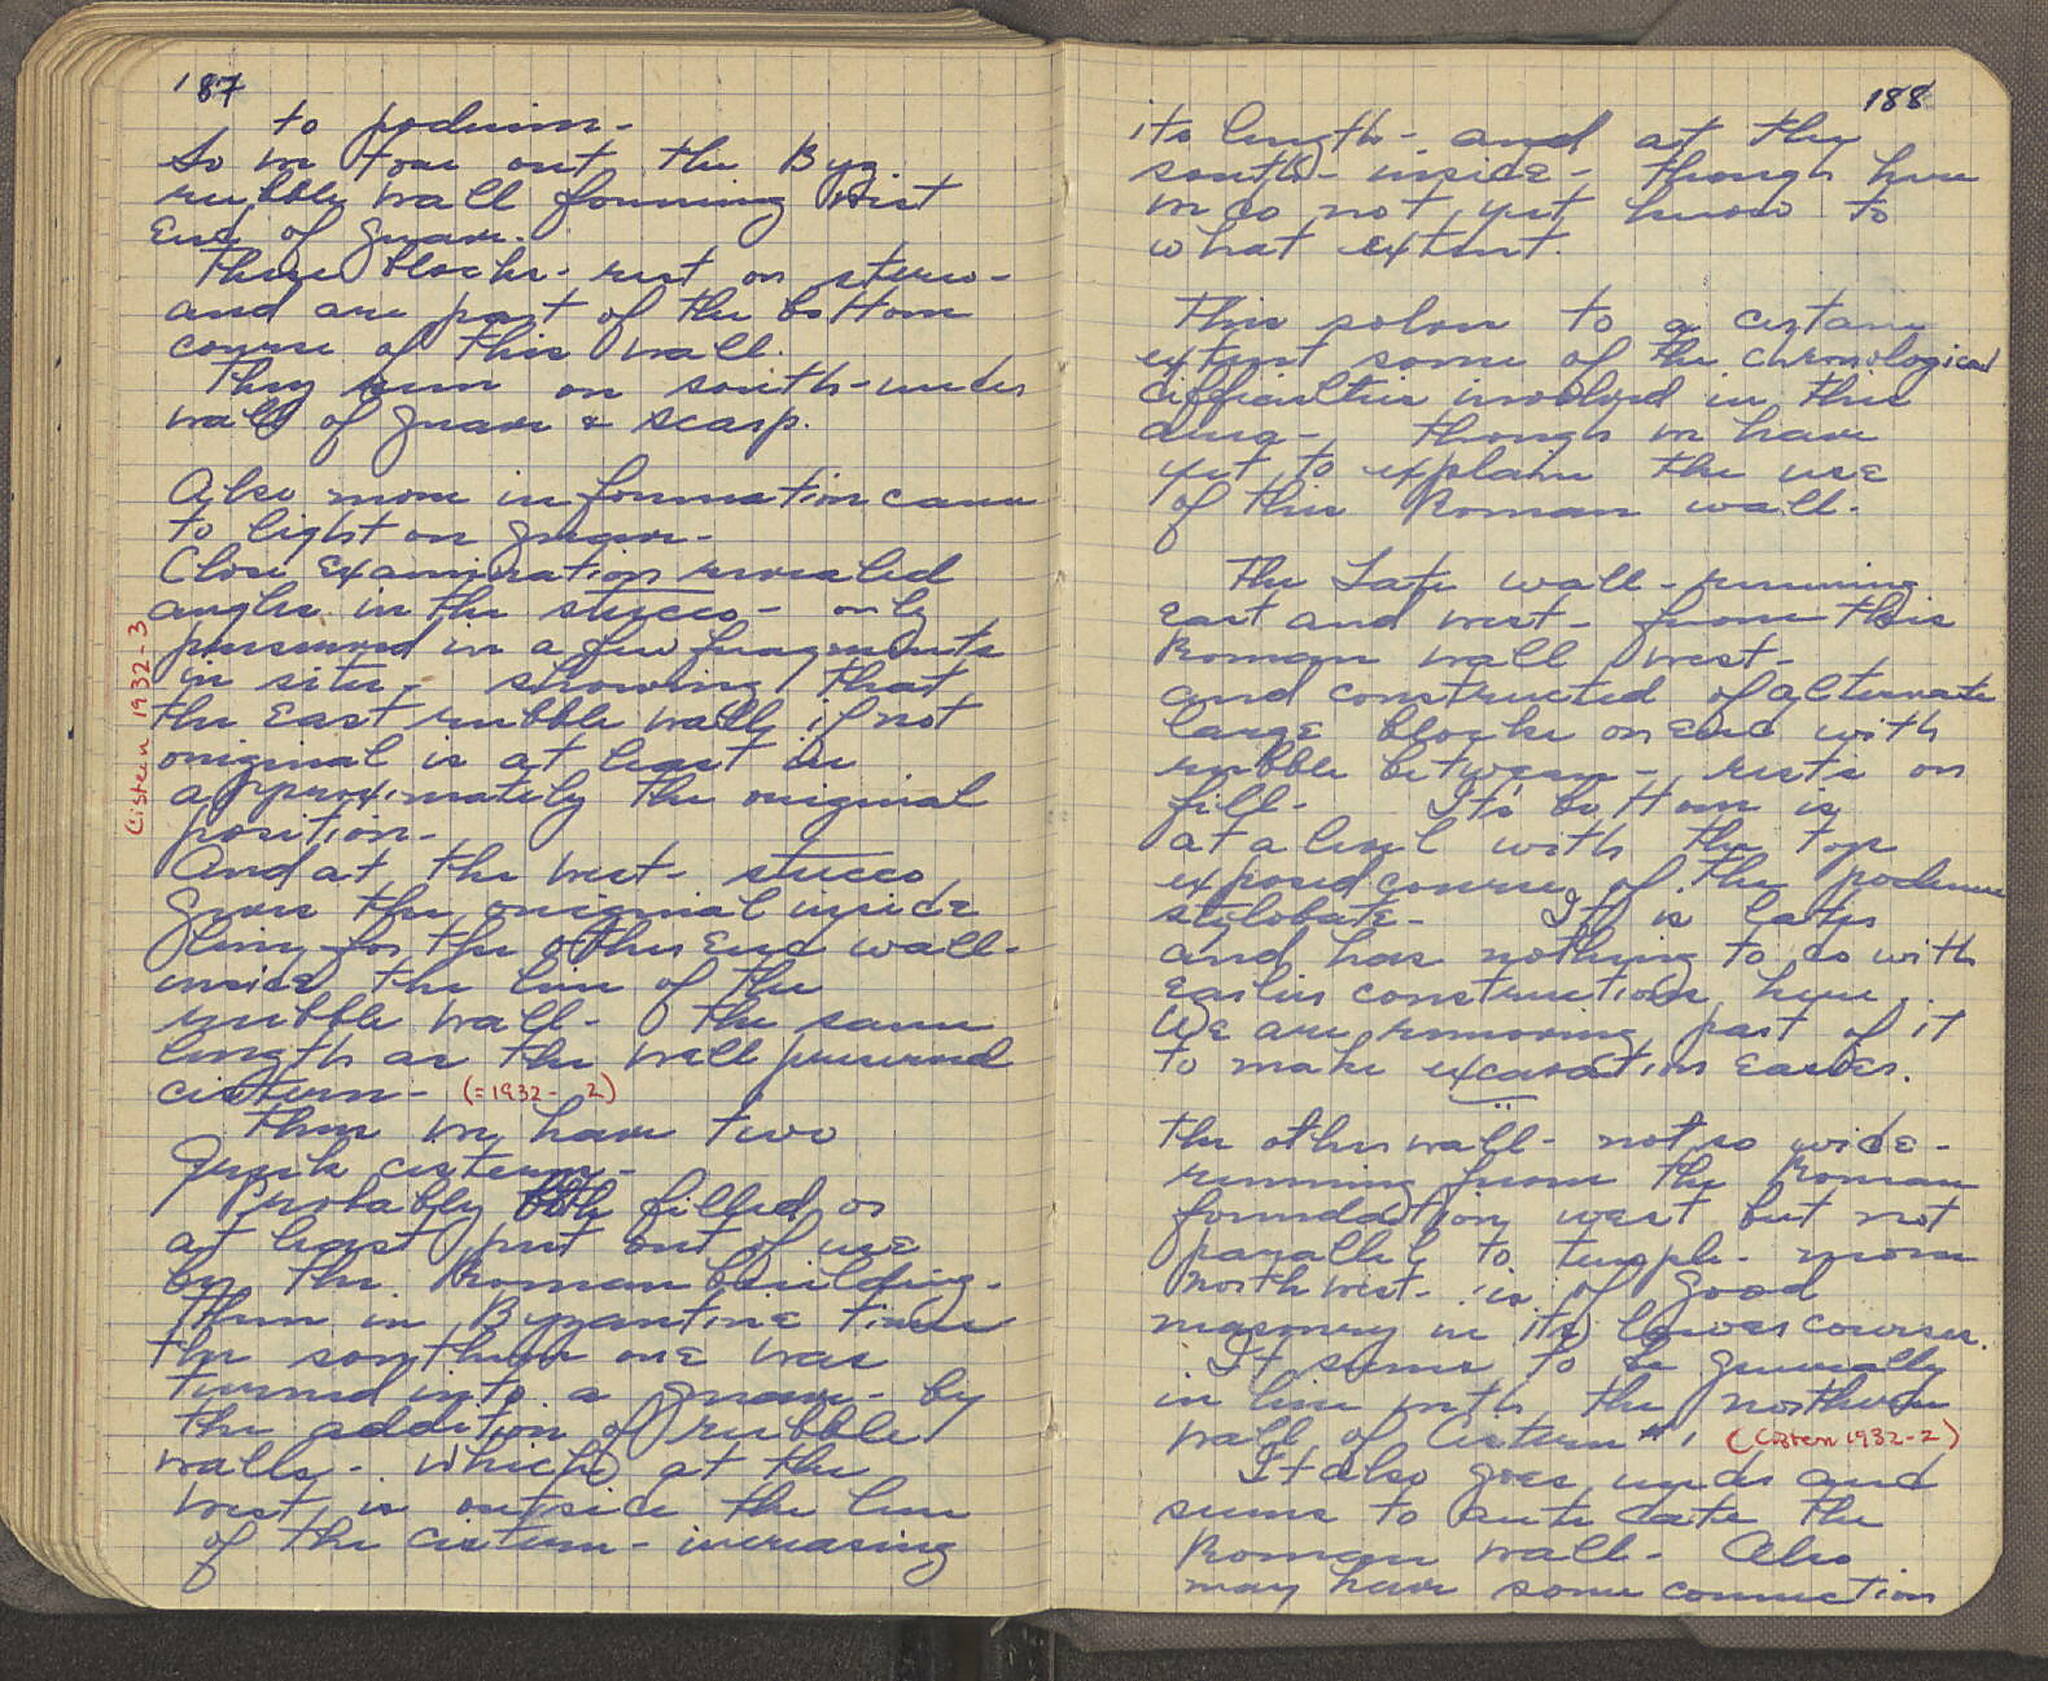 187
to podium-
So we tore out the Byz.
rubble wall forming West
End of grave.
These blocks- rest on stereo-
and are part of the bottom
course of this wall.
They run on south-under
wall of grave & scarp.
Also more information came
to light on grave-
Close examination revealed
angles in the stucco- only
preserved in a few fragments
in situ- showing that
the East rubble wall, if not
original is at least in
approximately the original
position-
And at the west- stucco
gives the original inside
line for the other end wall-
inside the line of the
rubble wall- the same
length as the well preserved
cistern- (=1932- 2)
Then we have two
Greek cisterns-
Probably both filled or
at least put out of use
by the Roman building.
Then in Byzantine times
the southern one was
turned into a grave- by
the addition of rubble
walls-. which at the
west is outside the line
of the cistern- increasing
Cistern 1932-3
188
its length- and at the
south- inside- though here
we do not yet know to
what extent.
This solves to a certain
extent some of the chronological
difficulties involved in this
area- though we have
yet to explain the use
of this Roman wall.
The Late wall-running
East and west- from this
Roman wall west-
and constructed of alternate
large blocks on end with
rubble between- rests on
fill- Its bottom is
at a level with the top
exposed course of the podium
stylobate- It is later
and has nothing to do with
earlier constructions here.
We are removing part of it
to make excavation easier.
The other wall- not so wide-
running from the Roman
foundation west but not
parallel to temple- more
north west- is of good
masonry in its lower courses.
It seems to be generally
in line with the northern
wall of Cistern #1 (Cistern 1932-2)
It also goes under and
seems to ante date the
Roman wall- Also
may have some connection